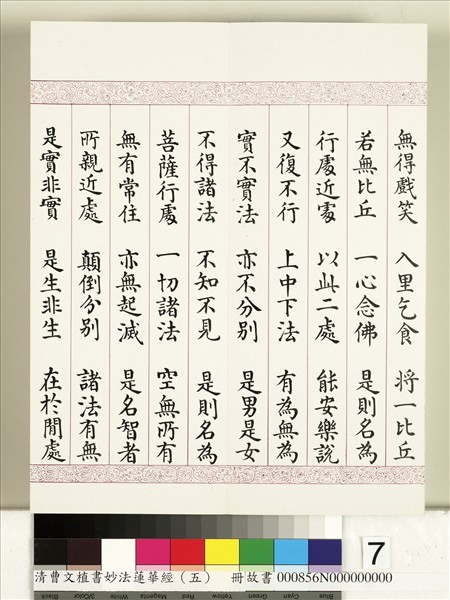 無得戲笑 入里乞食 將一比丘
若無比丘 一心念佛 是則名為
行處近處 以此二處 能安樂說
又復不行 上中下法 有為無為
實不實法 亦不分別 是男是女
不得諸法 不知不見 是則名為
菩薩行處 一切諸法 空無所有
無有常住 亦無起滅 是名智者
所親近處 顛倒分別 諸法有無
是實非實 是生非生 在於閒處
7
Black 3/Color White Magenta Red Yellow Green Cyan Blue
清曹文植書妙法蓮華經（五） 冊故書 000856N000000000